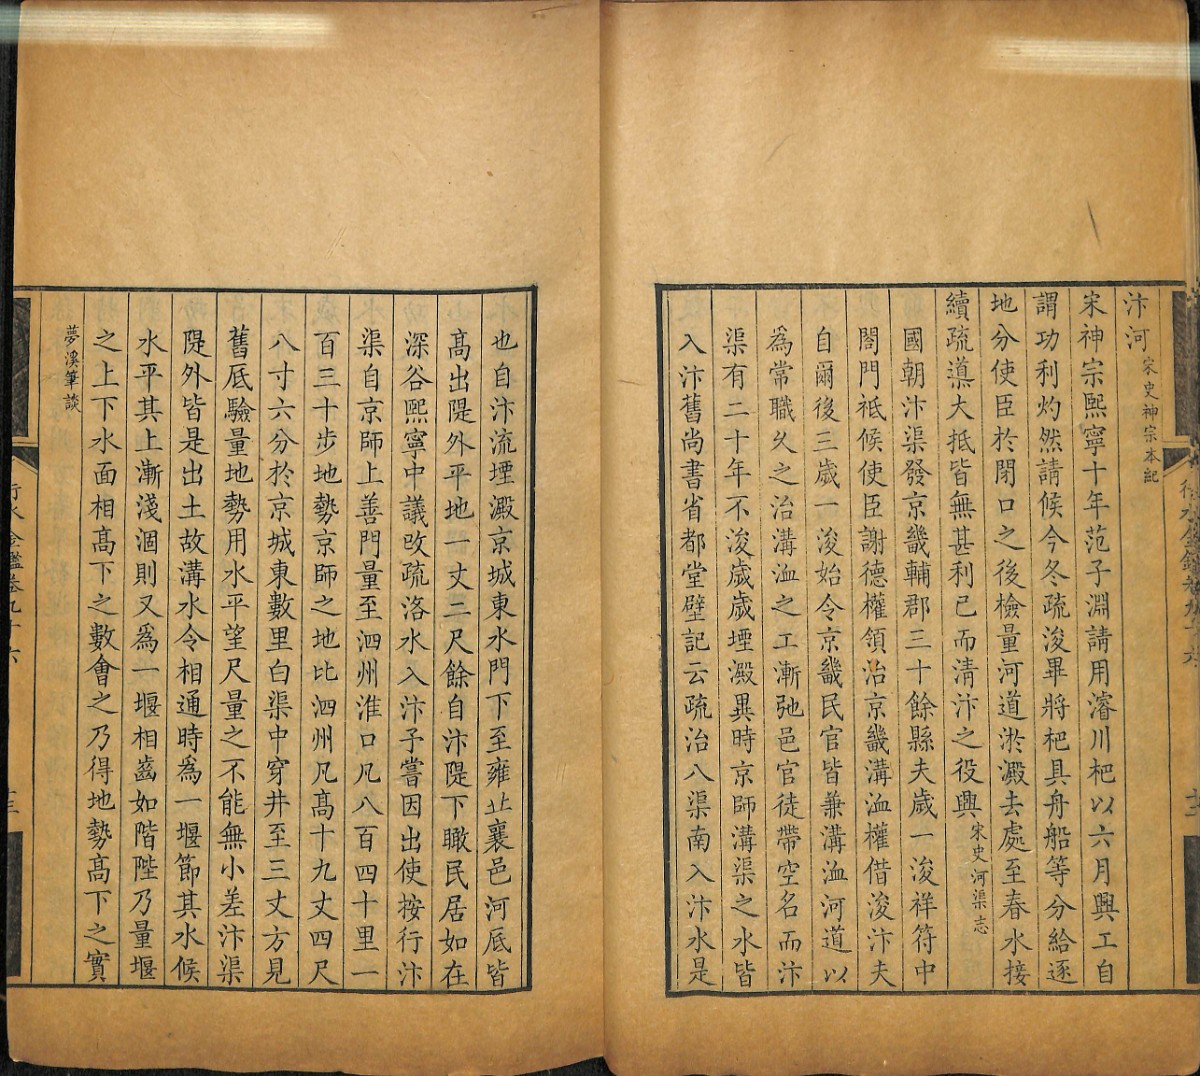 汴河宋史神宗本紀
宋神宗熙寧十年范子淵請用濬川杷以六月興工自
謂功利灼然請候今冬疏浚畢將杷具舟船等分給逐
地分使臣於閉口之後檢量河道淤澱去處至春水接
續疏導大抵皆無甚利已而清汴之役興宋史河渠志
國朝汴渠發京畿輔郡三十餘縣夫歲一浚祥符中
閤門祗候使臣謝德權領治京畿溝洫權借浚汴夫
自爾後三歲一浚始令京畿民官皆兼溝洫河道以
為常職久之治溝洫之工漸弛邑官徒帶空名而汴
渠有二十年不浚歲歲堙澱異時京師溝渠之水皆
入汴舊尚書省都堂壁記云疏治八渠南入汴水是
也自汴流堙澱京城東水門下至雍丠襄邑河底皆
高出隄外平地一丈二尺餘自汴隄下瞰民居如在
深谷熙寧中議攺疏洛水入汴予嘗因出使按行汴
渠自京師上善門量至泗州淮口凡八百四十里一
百三十步地勢京師之地比泗州凡高十九丈四尺
八寸六分於京城東數里白渠中穿井至三丈方見
舊底驗量地勢用水平望尺量之不能無小差汴渠
隄外皆是出土故溝水令相通時爲一堰節其水候
水平其上漸淺涸則又爲一堰相齒如階陛乃量堰
之上下水面相高下之數會之乃得地勢高下之實
夢溪筆談
行水金鑑卷九十六